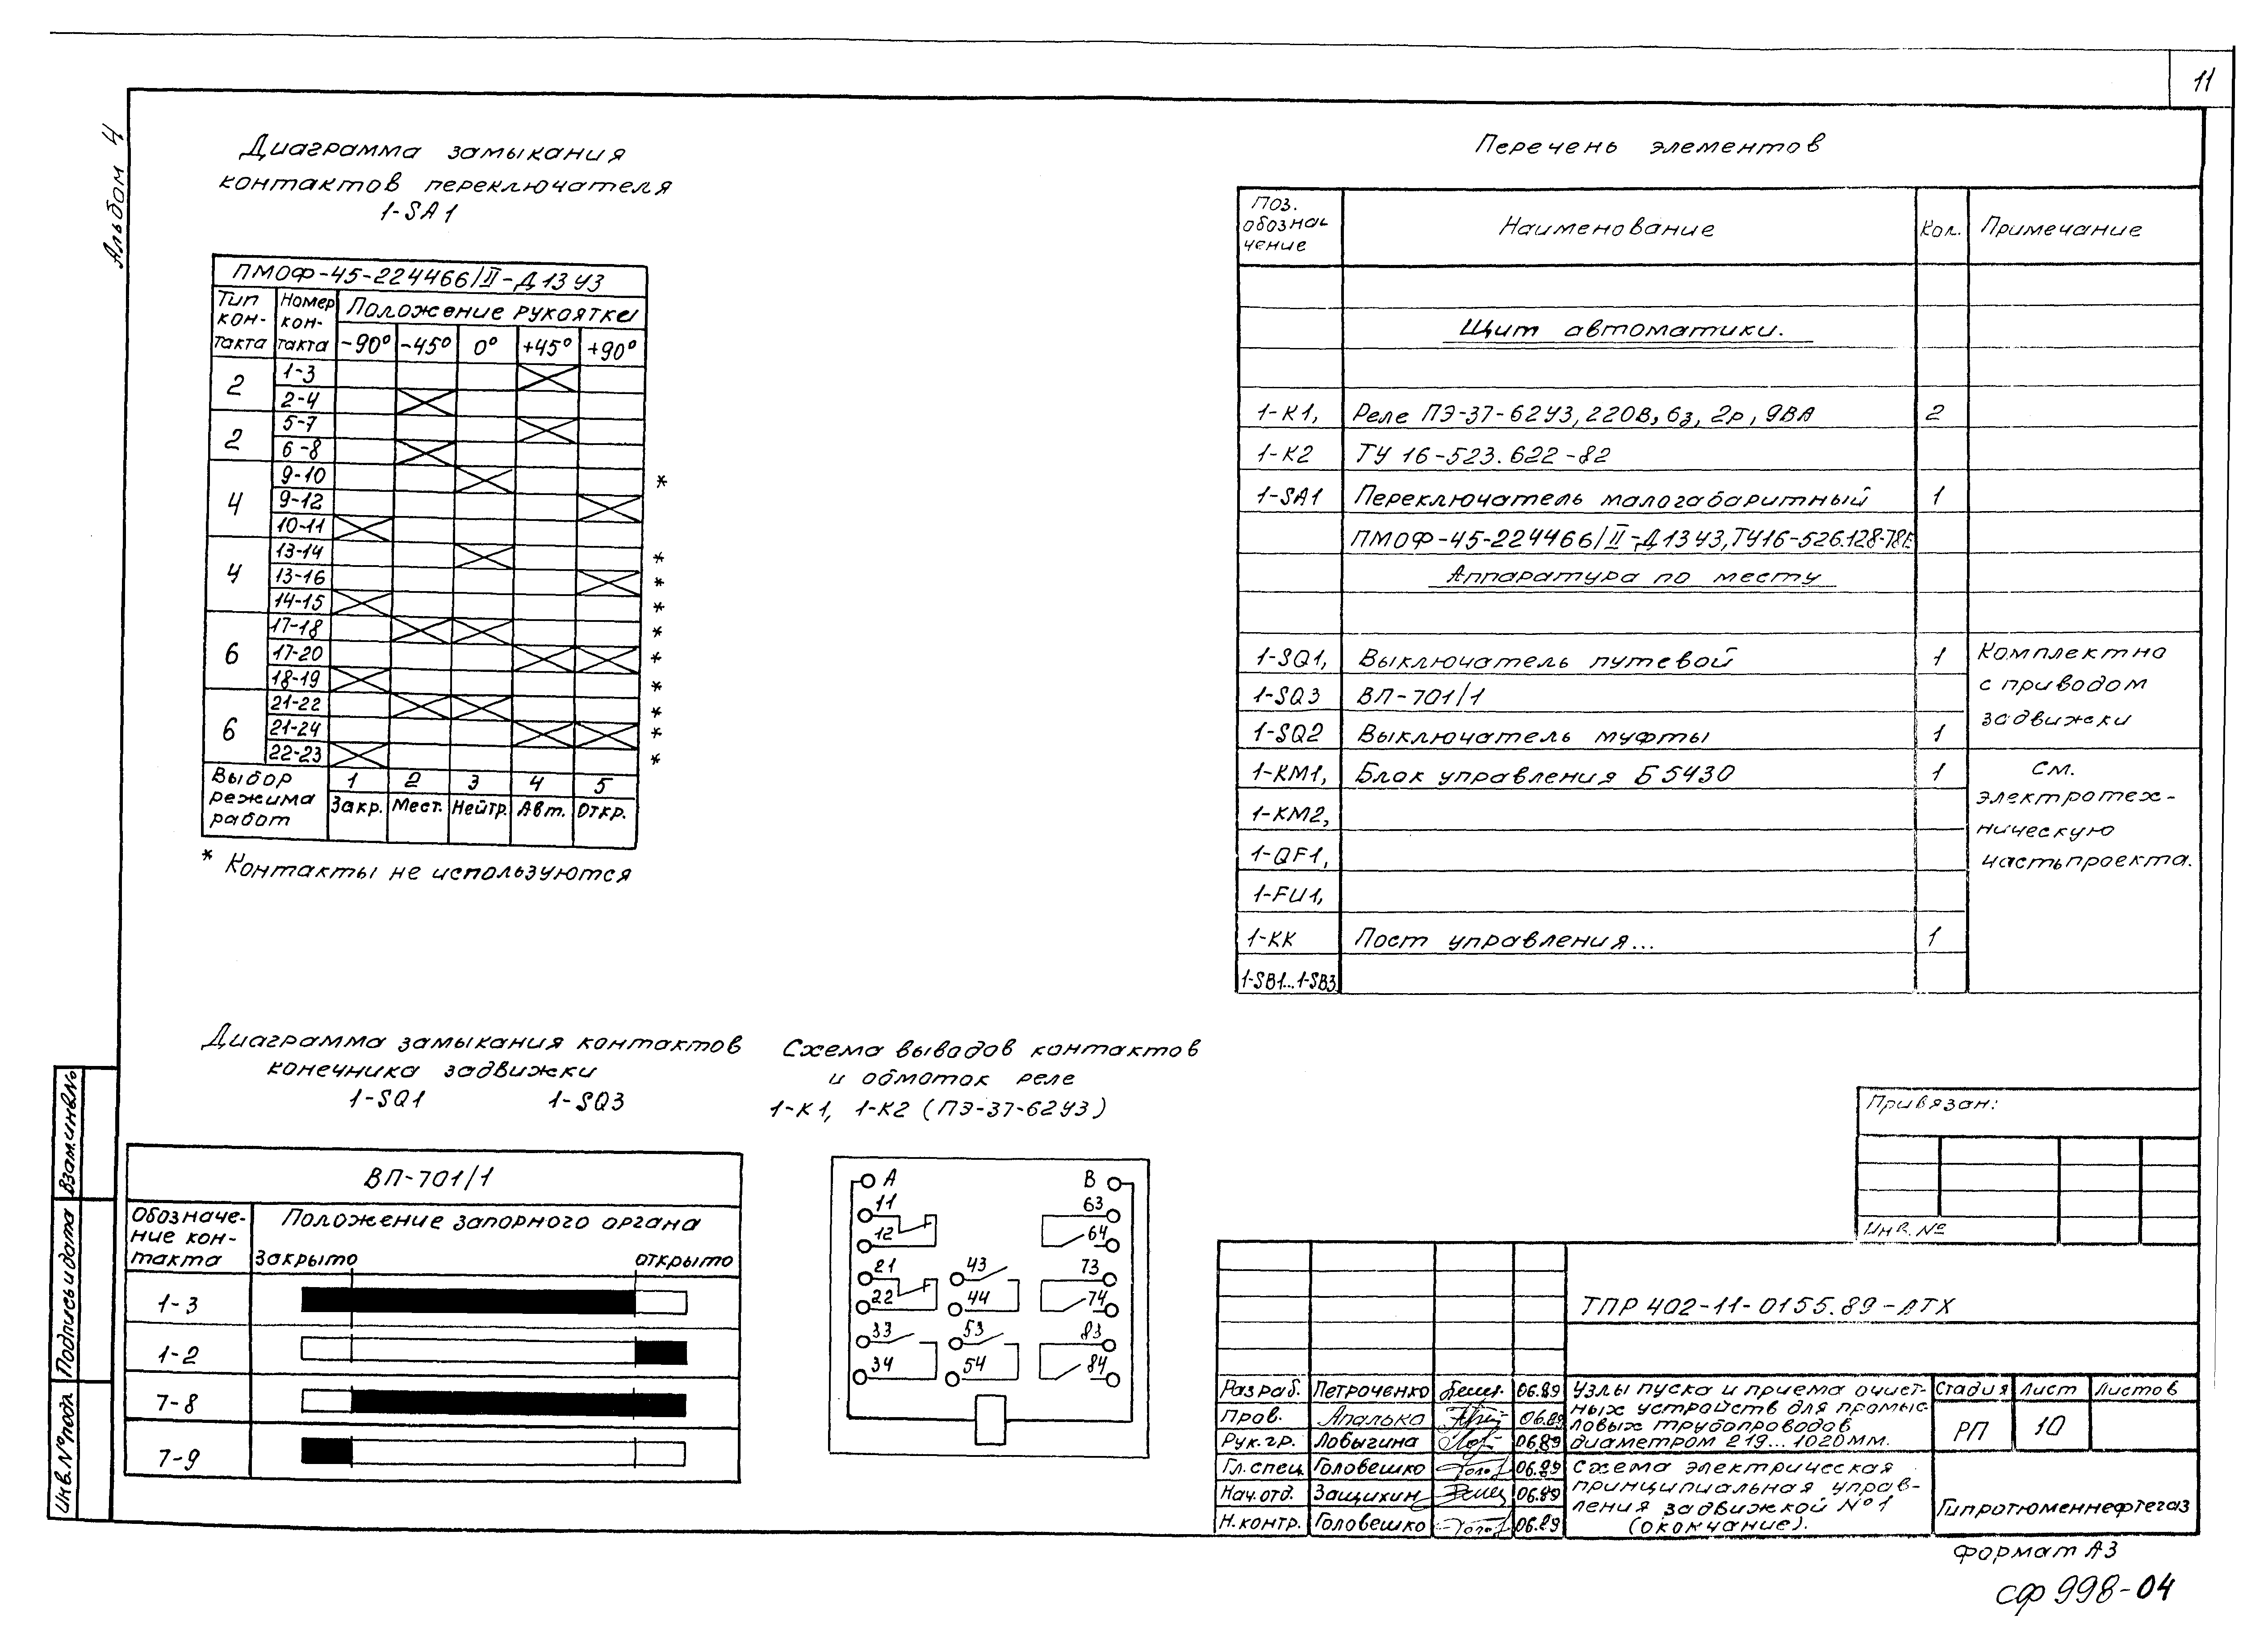 11
Альбом 4
Диаграмма замыкания
контактов переключателя
1-SA1
ПМОФ-45-224466/II-Д13У3
Тип кон-такта
Номер кон-такта
Положение рукоятки
-90° -45° 0° +45° +90°
2
1-3
2-4
2
5-7
6-8
4
9-10 *
9-12
10-11
4
13-14 *
13-16 *
14-15 *
6
17-18 *
17-20 *
18-19 *
6
21-22 *
21-24 *
22-23 *
Выбор режима работ
1 2 3 4 5
Закр. Мест. Нейтр. Авт. Откр.
* Контакты не используются
Перечень элементов
Поз. обозна-чение
Наименование
Кол.
Примечание
Щит автоматики.
1-К1, Реле ПЭ-37-62У3, 220В, 6з, 2р, 9ВА 2
1-К2 ТУ 16-523.622-82
1-SA1 Переключатель малогабаритный 1
ПМОФ-45-224466/II-Д13У3, ТУ16-526.128-78Е
Аппаратура по месту
1-SQ1, Выключатель путевой 1 Комплектно
1-SQ3 ВП-701/1 с приводом
задвижки
1-SQ2 Выключатель муфты 1
1-KM1, Блок управления Б5430 1 см.
электротех-
1-KM2,
ническую
1-QF1, часть проекта.
1-FU1,
1-KK Пост управления... 1
1-SB1...1-SB3
Диаграмма замыкания контактов
конечника задвижки
1-SQ1 1-SQ3
ВП-701/1
Обозначе-
ние кон-
такта
Положение запорного органа
закрыто открыто
1-3
1-2
7-8
7-9
Схема выводов контактов
и обмоток реле
1-К1, 1-К2 (ПЭ-37-62У3)
А В
11 63
12 64
21 43 73
22 44 74
33 53 83
34 54 84
Привязан:
Инв. №
ТПР 402-11-0155.89-АТХ
Разраб. Петроченко 06.89
Пров. Апалько 06.89
Рук.гр. Лобыгина 06.89
Гл.спец. Головешко 06.89
Нач.отд. Защихин 06.89
Н.контр. Головешко 06.89
Узлы пуска и приема очист-
ных устройств для промыс-
ловых трубопроводов
диаметром 219...1020мм.
Схема электрическая
принципиальная управ-
ления задвижкой №1
(окончание).
Стадия Лист Листов
РП 10
Гипротюменнефтегаз
Формат А3
сф 998-04
Взам.инв№
Подпись и дата
Инв.№подл.